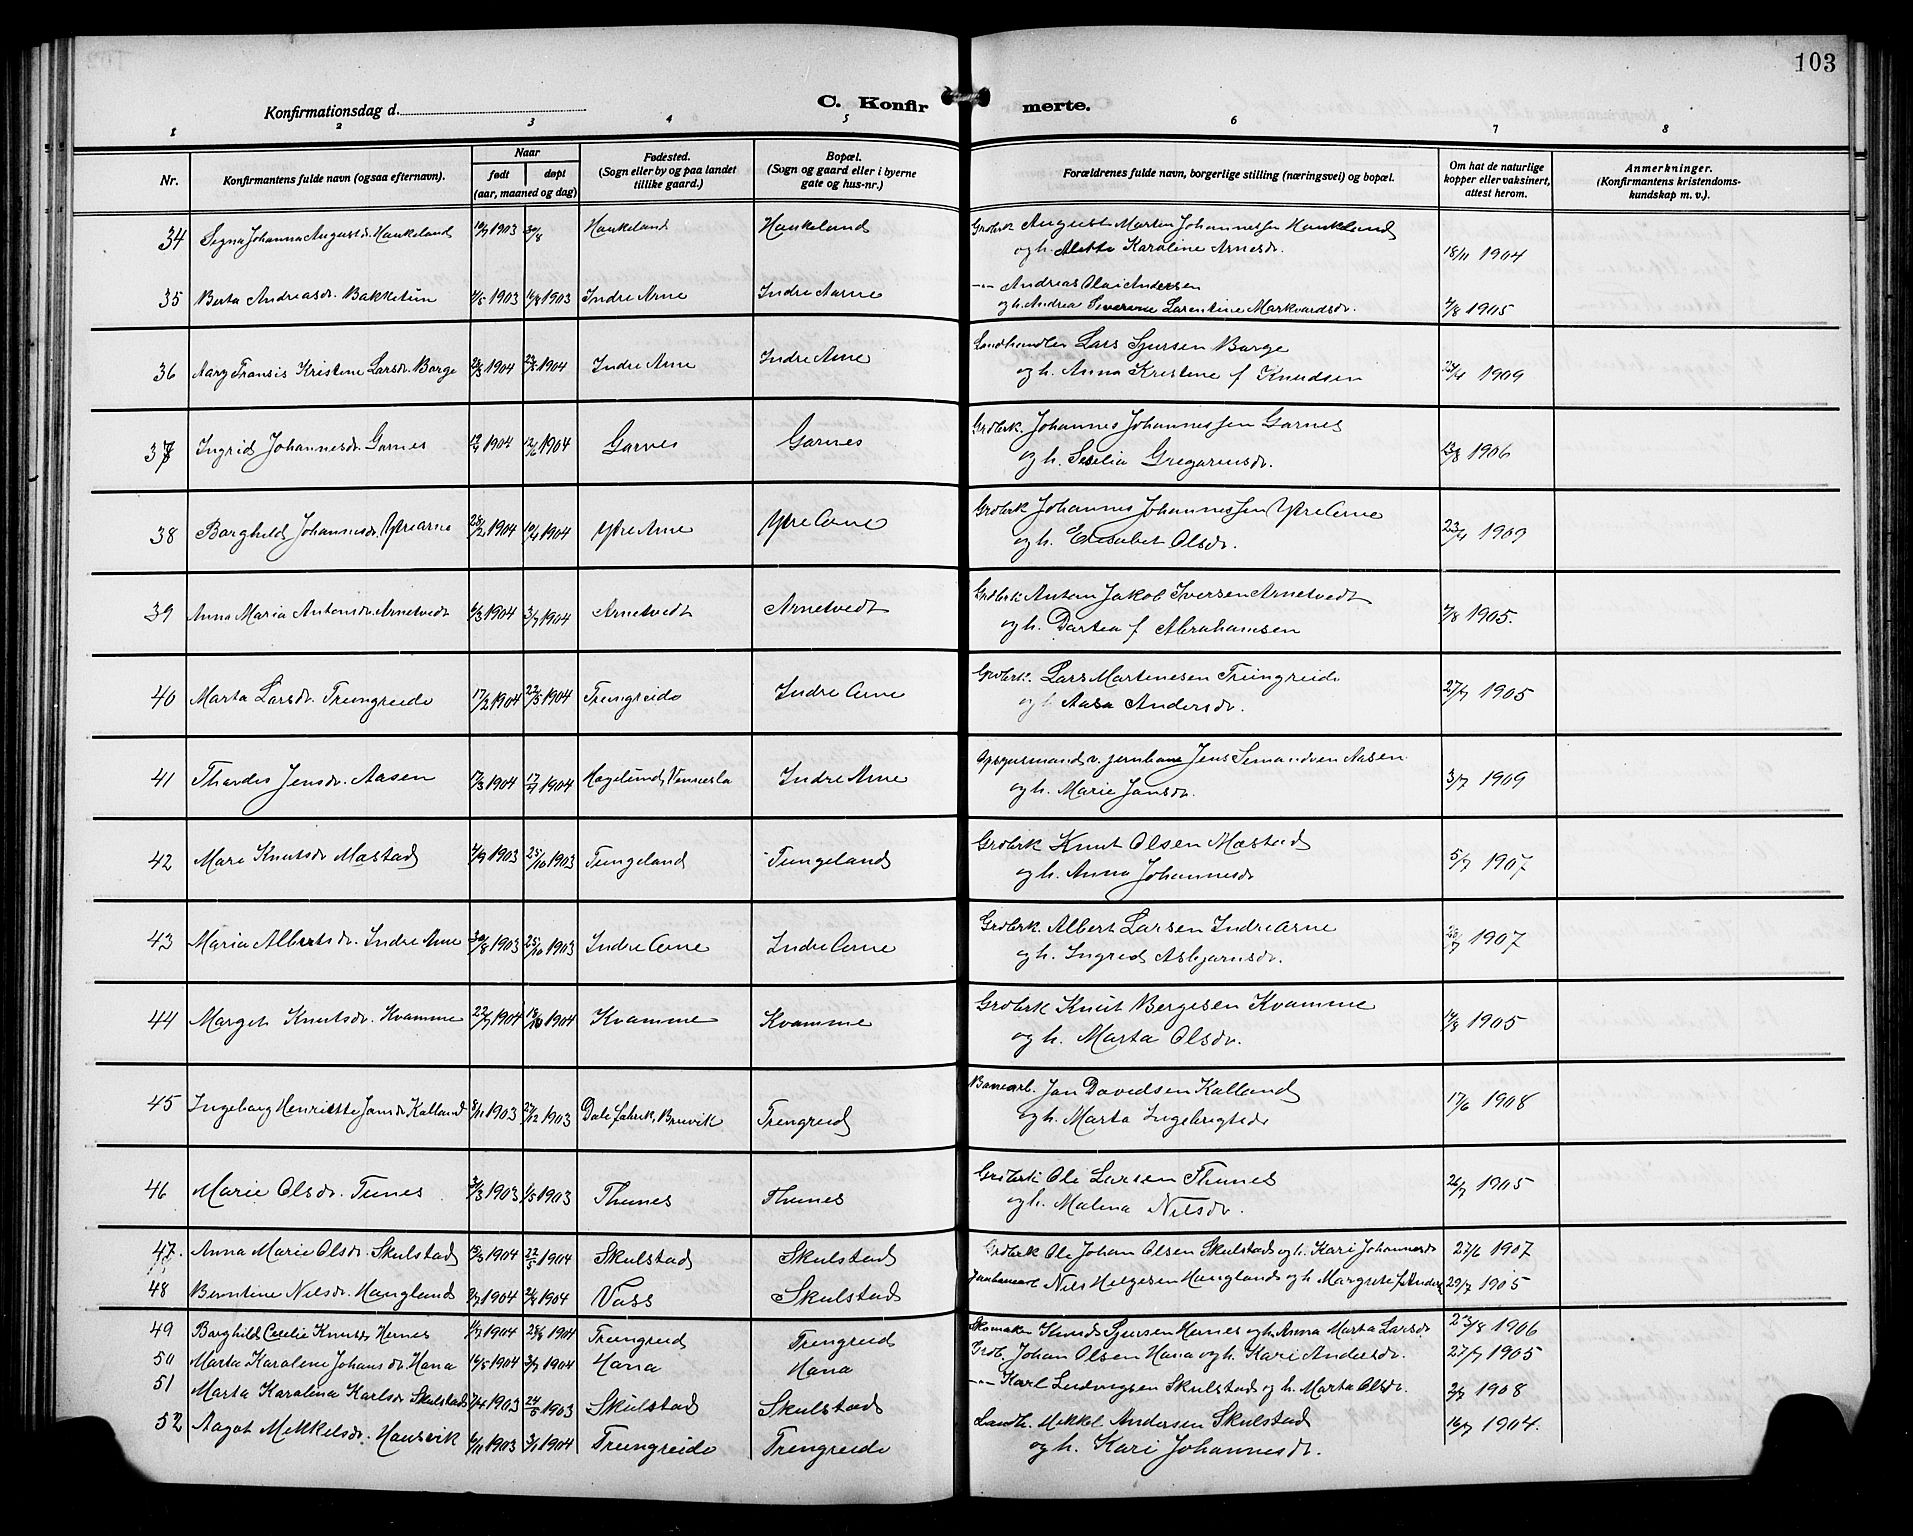 103
Konfirmationsdag d.
C. Konfirmerte.
1 2 3 4 5 6 7 8
Nr.
Konfirmantens fulde navn (ogsaa efternavn).
Naar
født døpt
(aar, maaned og dag)
Fødested.
(Sogn eller by og paa landet
tillike gaard.)
Bopæl.
(Sogn og gaard eller i byerne
gate og hus-nr.)
Forældrenes fulde navn, borgerlige stilling (næringsvei) og bopæl.
Om hat de naturlige
kopper eller vaksinert,
attest herom.
Anmerkninger.
(Konfirmantens kristendoms-
kundskap m. v.).
34 Signa Johanna Augustdr. Haukeland 1903 30/8 Haukeland Haukeland Grdbrk August Martin Johannessen Haukland
og h. Alette Karoline Arnesdr. 18/11 1904
35 Berta Andreasdr. Bakketun 1903 1903 Indre Arne Indre Aarne -"- Andreas Olai Andersen
og h. Andrea Severine Larentine Markvardsdr. 1905
36 Aary Fransis Kristine Larsdr. Borge 1904 1904 Indre Arne Indre Arne Landhandler Lars Sjursen Borge
og h. Anna Kristine f Knudsen 1909
37 Ingrid Johannesdr. Garnes 1904 12/6 1904 Garnes Garnes Grdbrk. Johannes Johannessen Garnes
og h. Seselia Gregoriusdr. 1906
38 Borghild Johannesdr. Ytre arne 28/2 1904 10/4 1904 Ytre Arne Ytre Arne Grdbrk Johannes Johannessen Ytre Arne
og h. Elisabet Olsdr. 23/4 1909
39 Anna Maria Antonsdr. Arnetvedt 6/3 1904 3/7 1904 Arnetvedt Arnetvedt Grdbrk. Anton Jakob Iversen Arnetvedt
og h. Dortea f Abrahamsen 1905.
40 Marta Larsdr. Trengreide 17/2 1904 22/5 1904 Trengreide Indre Arne Grdbrk. Lars Martinesen Trengreide
og h Aasa Andersdr. 27/7 1905
41 Thordis Jensdr. Aasen 17/3 1904 17/4 1904 Hægelund, Vennesla Indre Arne Opsynsmand v. jernbane Jens Simandsen Aasen
og h. Marie Jansdr. 3/7 1909
42 Mari Knutsdr Mastad 1903 25/10 1903 Tungeland Tungeland Grdbrk Knut Olsen Mæstad
og h. Anna Johannesdr 5/7 1907
43 Maria Albertsdr. Indre Arne 30/8 1903 25/10 1903 Indre Arne Indre Arne Grdbrk. Albert Larsen Indre arne
og h. Ingrid Asbjørnsdr. 1907
44 Margit Knutsdr. Kvamme 22/7 1904 1904 Kvamme Kvamme Grdbrk Knut Bergesen Kvamme
og h. Marta Olsdr. 14/8 1905
45 Ingeborg Henriette Jansdr Kalland 8/11 1903 27/12 1903 Dale fabrik, Bruvik Trengreid Banearb. Jan Davidsen Kalland
og h. Marta Ingebrigtsdr 17/6 1908
46 Marie Olsdr. Tunes 1903 1/5 1903 Thunes Thunes Grdbrk. Ole Larsen Thunes
og h. Malena Nilsdr. 26/7 1905
47. Anna Marie Olsdr. Skulstad 1904 22/5 1904 Skulstad Skulstad Grdbrk Ole Johan Olsen Skulstad og h. Kari Johannesdr 27/6 1907
48 Berntine Nilsdr. Haugland 1904 1904 Voss Skulstad Nils Helgesen Haugland og h. Margrete f. Anders 29/7 1905
49 Borghild Cecilie Knutsdr Hernes 1904 28/8 1904 Trengreid Trengreid Skomaker Knud Sjursen Hernes og h. Anna Marta Larsdr 23/8 1906
50 Marta Karoline Johansdr. Hana 1904 3/7 1904 Hana Hana Grdb. Johan Olsen Hana og h. Kari Andersdr. 27/7 1905
51 Marta Karolina Karlsdr Skulstad 1903 24/5 1903 Skulstad Skulstad -"- Karl Ludvigsen Skulstad og h. Marta Olsdr. 1908
52 Aagot Mikkelsdr. Hausvik 1903 3/1 1904 Trengreide Trengreide Landh. Mikkel Andersen Skulstad
og h. Kari Johannesdr. 16/7 1904.